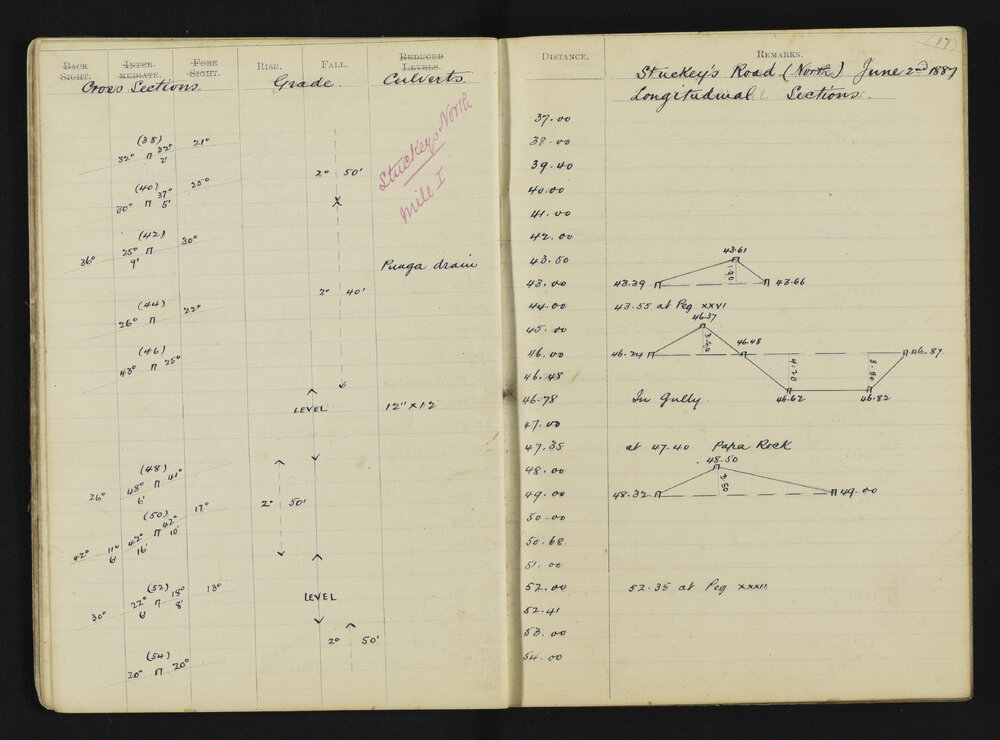 BACK SIGHT. INTER-MEDIATE. FORE SIGHT. RISE. FALL. REDUCED LEVELS.
Cross Sections Grade Culverts
(38)
32° 32° 21°
2'
2° 50'
Stuckeys North
Mile I
(40)
30° 37° 25°
5'
(42)
36° 25° 30°
9'
Punga drain
2° 40'
(44)
26° 22°
(46)
43° 25°
LEVEL 12" x 12
(48)
26° 48° 41°
6'
2° 50'
(50)
42° 11° 42° 42° 17°
6' 16' 10'
(52)
30° 22° 18° 13°
6' 8'
LEVEL
2° 50'
(54)
20° 20°
(17)
DISTANCE. REMARKS.
Stuckey's Road (North) June 2nd 1887
Longitudinal Sections.
37.00
38.00
39.40
40.00
41.00
42.00
43.50
43.00
44.00
45.00
46.00
46.48
46.78
47.00
47.35
48.00
49.00
50.00
50.68
51.00
52.00
52.41
53.00
54.00
43.61
43.39 1.90 43.66
43.55 at Peg XXVI
46.37
46.24 3.40 46.48 4.20 3.80 46.87
46.62 46.82
In Gully.
at 47.40 Papa Rock
48.50
48.32 3.50 49.00
52.35 at Peg XXXII